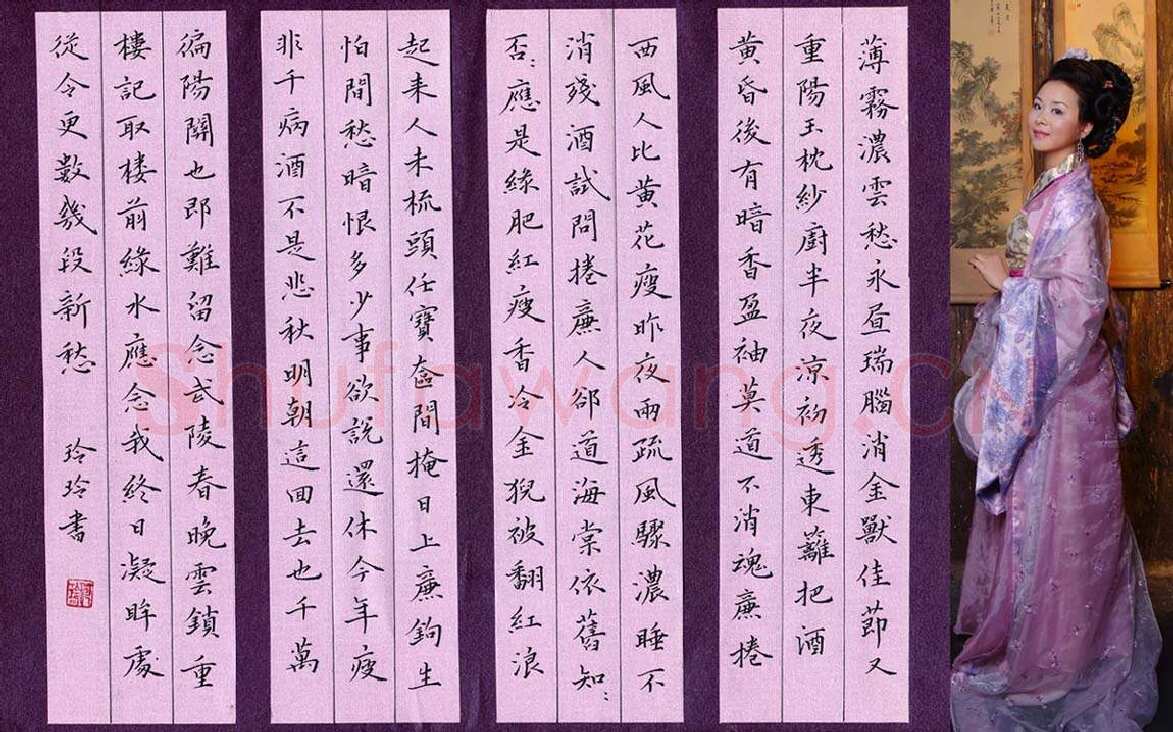 薄霧濃雲愁永昼瑞腦消金獸佳節又
重陽玉枕紗廚半夜涼初透東籬把酒
黃昏後有暗香盈袖莫道不消魂廉捲
西風人比黃花瘦昨夜雨疏風驟濃睡不
消殘酒試問捲廉人卻道海棠依舊知:
否:應是綠肥紅瘦香冷金猊被翻紅浪
起來人未梳頭任寶奩間掩日上廉鉤生
怕間愁暗恨多少事欲說還休今年瘦
非千病酒不是悲秋明朝這回去也千萬
徧陽關也即難留念武陵春晚雲鎖重
樓記取樓前綠水應念我終日凝眸處
從今更數幾段新愁 玲玲書
Shufawang.cn